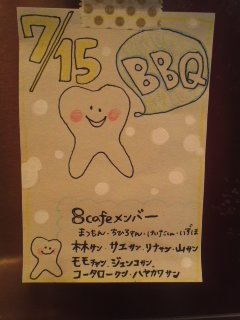 7/15
BBQ
8cafeメンバー
まつもん・ちひろさん・けいたくん・いずほ
林サン・サエサン・リナサン・山サン
モモチャン・ジュンコサン・
コータロークン・ハヤカワサン